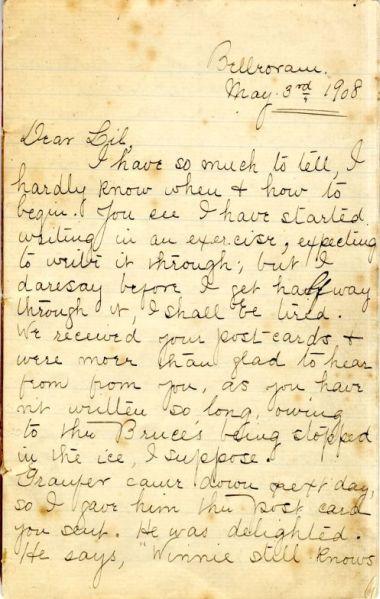 Belleoram.
May. 3rd, 1908
Dear Lil,
I have so much to tell, I
hardly know when & how to
begin. You see I have started
writing in an exercise, expecting
to write it through; but I
daresay before I get half way
through it, I shall be tired.
We received your post cards, &
were more than glad to hear
from from you, as you have
n't written so long, owing
to the Bruce's being stopped
in the ice, I suppose.
Granfer came down next day,
so I gave him the post card
you sent. He was delighted.
He says, "Winnie still knows